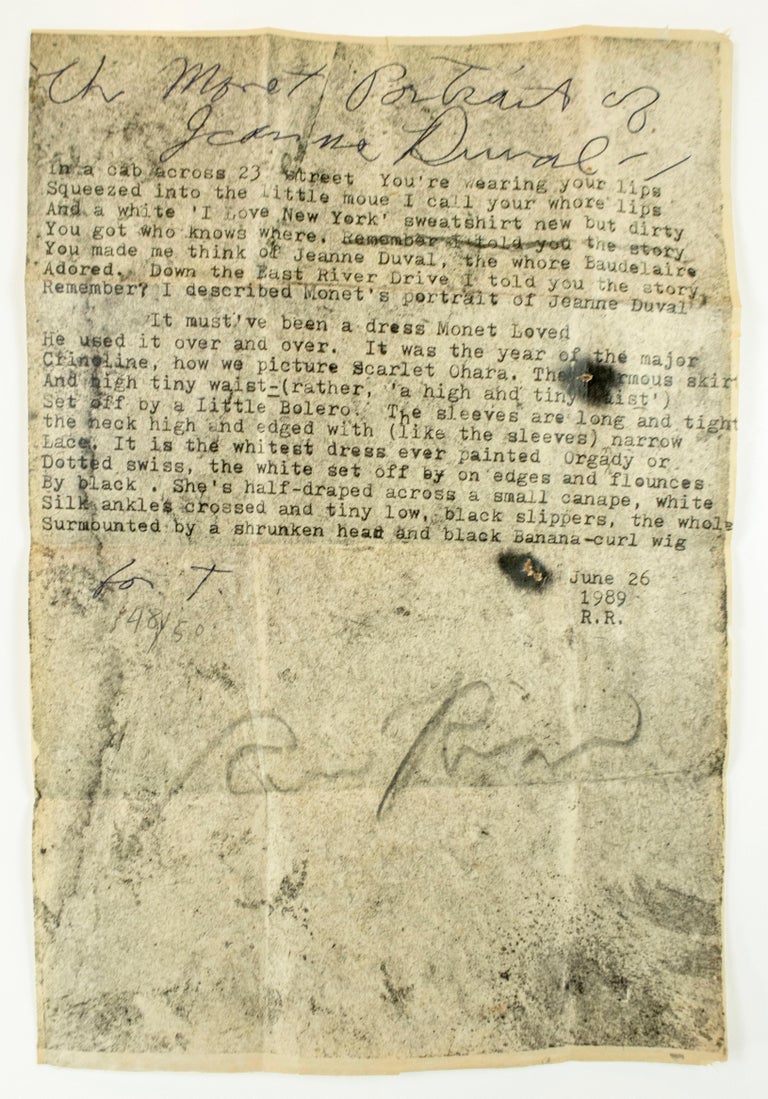 The Monet Portrait of
Jeanne Duval
In a cab across 23 street You're wearing your lips
Squeezed into the little moue I call your whore lips
And a white 'I Love New York' sweatshirt new but dirty
You got who knows where. Remember I told you the story
You made me think of Jeanne Duval, the whore Baudelaire
Adored. Down the East River Drive I told you the story,
Remember? I described Monet's portrait of Jeanne Duval
It must've been a dress Monet Loved
He used it over and over. It was the year of the major
Crinoline, how we picture Scarlet Ohara. The skir
And high tiny waist-(rather, 'a high and tiny waist')
Set off by a Little Bolero. The sleeves are long and tight
the neck high and edged with (like the sleeves) narrow
Lace. It is the whitest dress ever painted Orgady or
Dotted swiss, the white set off by on edges and flounces
By black . She's half-draped across a small canape, white
Silk ankles crossed and tiny low, black slippers, the whole
Surmounted by a shrunken head and black Banana-curl wig
for T.
June 26
1989
R.R.